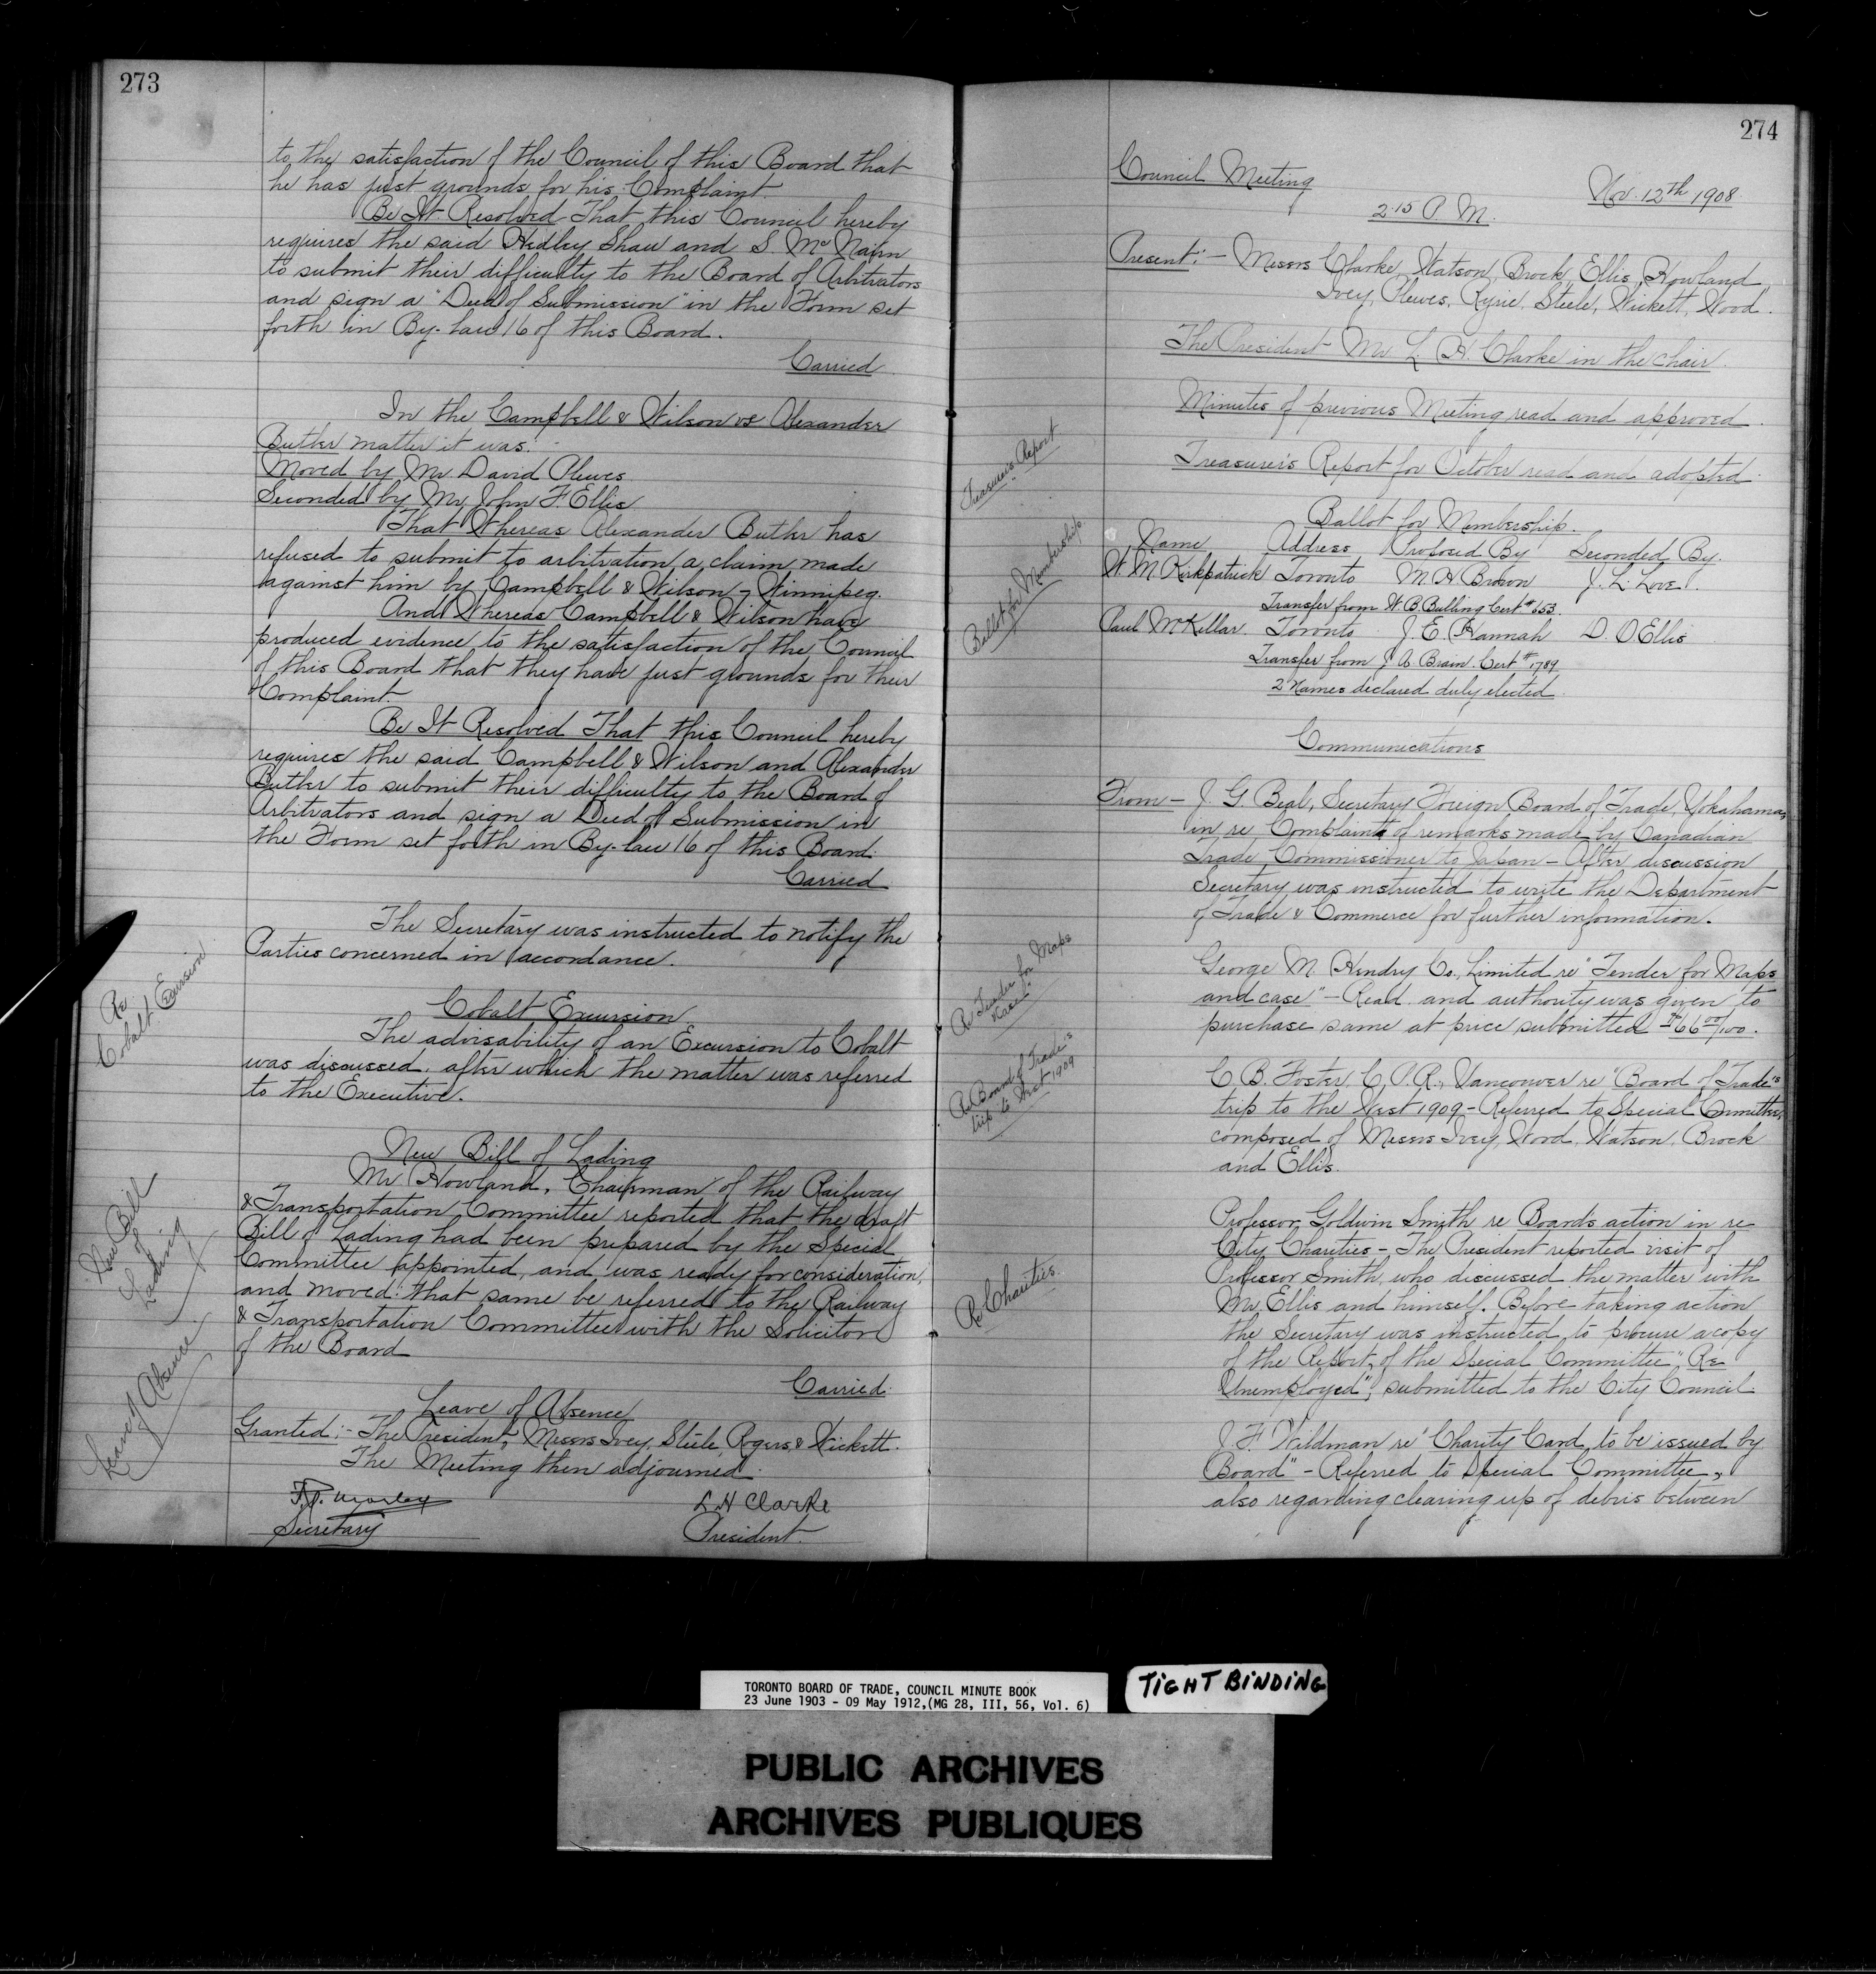 273
to the satisfaction of the Council of this Board that
he has just grounds for his Complaint.
Be It Resolved That this Council hereby
requires the said Hedley Shaw and S. McNairn
to submit their difficulty to the Board of Arbitrators
and sign a "Deed of Submission" in the Form set
forth in By-law 16 of this Board.
Carried
In the Campbell & Wilson vs Alexander
Butler matter it was:-
Moved by Mr David Plewes
Seconded by Mr John F. Ellis
That Whereas Alexander Butler has
refused to submit to arbitration a claim made
against him by Campbell & Wilson, Winnipeg.
And Whereas Campbell & Wilson have
produced evidence to the satisfaction of the Council
of this Board that they have just grounds for their
Complaint.
Be It Resolved That this Council hereby
requires the said Campbell & Wilson and Alexander
Butler to submit their difficulty to the Board of
Arbitrators and sign a Deed of Submission in
the Form set forth in By-law 16 of this Board.
Carried
The Secretary was instructed to notify the
Parties concerned in accordance.
Re
Cobalt Excursion
Cobalt Excursion
The advisability of an Excursion to Cobalt
was discussed, after which the matter was referred
to the Executive.
New Bill
of
Lading
New Bill of Lading
Mr Howland, Chairman of the Railway
& Transportation Committee reported that the draft
Bill of Lading had been prepared by the Special
Committee appointed, and was ready for consideration,
and moved: that same be referred to the Railway
& Transportation Committee with the Solicitor
of the Board
Carried
Leave of Absence
Leave of Absence
Granted:- The President, Messrs Ivey, Steele, Rogers & Wickett.
The Meeting then adjourned.
F.G. Morley
Secretary
L H Clarke
President.
274
Council Meeting
Nov. 12th 1908.
2.15 P.M.
Present:- Messrs Clarke, Watson, Brock, Ellis, Howland,
Ivey, Plewes, Ryrie, Steele, Wickett, Wood.
The President Mr L. H. Clarke in the chair.
Minutes of previous Meeting read and approved.
Treasurer's Report
Treasurer's Report for October read and adopted.
Ballot for Membership
Ballot for Membership.
Name Address Proposed By Seconded By.
W. M. Kirkpatrick Toronto M. H. Brown J. L. Love.
Transfer from W. B. Bulling Cert #653.
Paul McKellar Toronto J. E. Hannah D. O Ellis
Transfer from J A Brain Cert #1789
2 Names declared duly elected.
Communications
From - J. G. Beal, Secretary Foreign Board of Trade, Yokahama,
in re Complaint of remarks made by Canadian
Trade Commissioner to Japan - After discussion
Secretary was instructed to write the Department
of Trade & Commerce for further information.
Re Tender for Maps
& Case
George M. Hendry Co. Limited re "Tender for Maps
and case" - Read and authority was given to
purchase same at price submitted $66 00/100.
Re Board of Trade's
trip to West 1909
C. B. Foster, C.P.R., Vancouver re "Board of Trade's
trip to the West 1909 - Referred to Special Committee,
composed of Messrs Ivey, Wood, Watson, Brock
and Ellis.
Re Charities.
Professor Goldwin Smith re Boards action in re
City Charities - The President reported visit of
Professor Smith, who discussed the matter with
Mr Ellis and himself. Before taking action
the Secretary was instructed to procure a copy
of the Report of the Special Committee "Re
Unemployed", submitted to the City Council
J. F. Wildman re "Charity Card to be issued by
Board" - Referred to Special Committee,
also regarding clearing up of debris between
TORONTO BOARD OF TRADE, COUNCIL MINUTE BOOK
23 June 1903 - 09 May 1912,(MG 28, III, 56, Vol. 6)
TIGHT BINDING
PUBLIC ARCHIVES
ARCHIVES PUBLIQUES